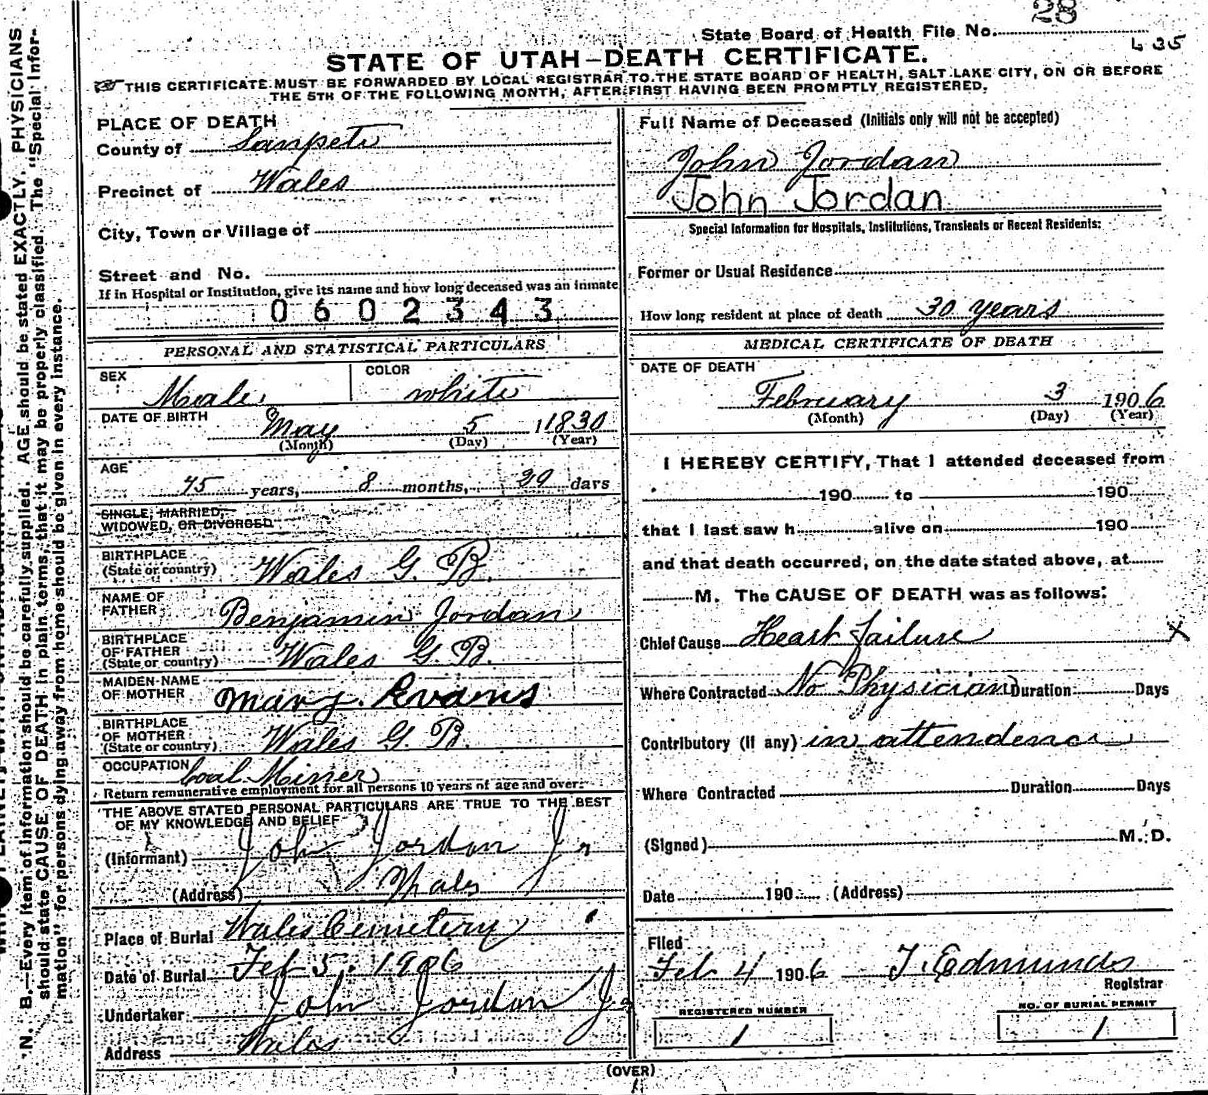 28
State Board of Health File No.
L 35
STATE OF UTAH—DEATH CERTIFICATE.
THIS CERTIFICATE MUST BE FORWARDED BY LOCAL REGISTRAR TO THE STATE BOARD OF HEALTH, SALT LAKE CITY, ON OR BEFORE
THE 5TH OF THE FOLLOWING MONTH, AFTER FIRST HAVING BEEN PROMPTLY REGISTERED.
PLACE OF DEATH
County of Sanpete
Precinct of Wales
City, Town or Village of
Street and No.
If in Hospital or Institution, give its name and how long deceased was an inmate
0602343
PERSONAL AND STATISTICAL PARTICULARS
SEX Male COLOR white
DATE OF BIRTH May 5 1830
(Month) (Day) (Year)
AGE
75 years, 8 months, 29 days
SINGLE, MARRIED,
WIDOWED, OR DIVORCED
BIRTHPLACE
(State or country) Wales G. B.
NAME OF
FATHER Benjamin Jordan
BIRTHPLACE
OF FATHER
(State or country) Wales G. B.
MAIDEN NAME
OF MOTHER Mary Evans
BIRTHPLACE
OF MOTHER
(State or country) Wales G. B.
OCCUPATION Coal Miner
Return remunerative employment for all persons 10 years of age and over.
THE ABOVE STATED PERSONAL PARTICULARS ARE TRUE TO THE BEST
OF MY KNOWLEDGE AND BELIEF
(Informant) John Jordan Jr
(Address) Wales
Place of Burial Wales Cemetery
Date of Burial Feb 5. 1906
Undertaker John Jordan Jr
Address Wales
Full Name of Deceased (Initials only will not be accepted)
John Jordan
John Jordan
Special Information for Hospitals, Institutions, Transients or Recent Residents:
Former or Usual Residence
How long resident at place of death 30 years
MEDICAL CERTIFICATE OF DEATH
DATE OF DEATH
February 3 1906
(Month) (Day) (Year)
I HEREBY CERTIFY, That I attended deceased from
190 to 190
that I last saw h alive on 190
and that death occurred, on the date stated above, at
M. The CAUSE OF DEATH was as follows:
Chief Cause Heart failure X
Where Contracted No Physician Duration Days
Contributory (if any) in attendence
Where Contracted Duration Days
(Signed) M. D.
Date 190 (Address)
Filed
Feb 4 1906 T. Edmunds
Registrar
REGISTERED NUMBER
1
NO. OF BURIAL PERMIT
1
(OVER)
N. B.—Every item of information should be carefully supplied. AGE should be stated EXACTLY. PHYSICIANS
should state CAUSE OF DEATH in plain terms, that it may be properly classified. The "Special Infor-
mation" for persons dying away from home should be given in every instance.